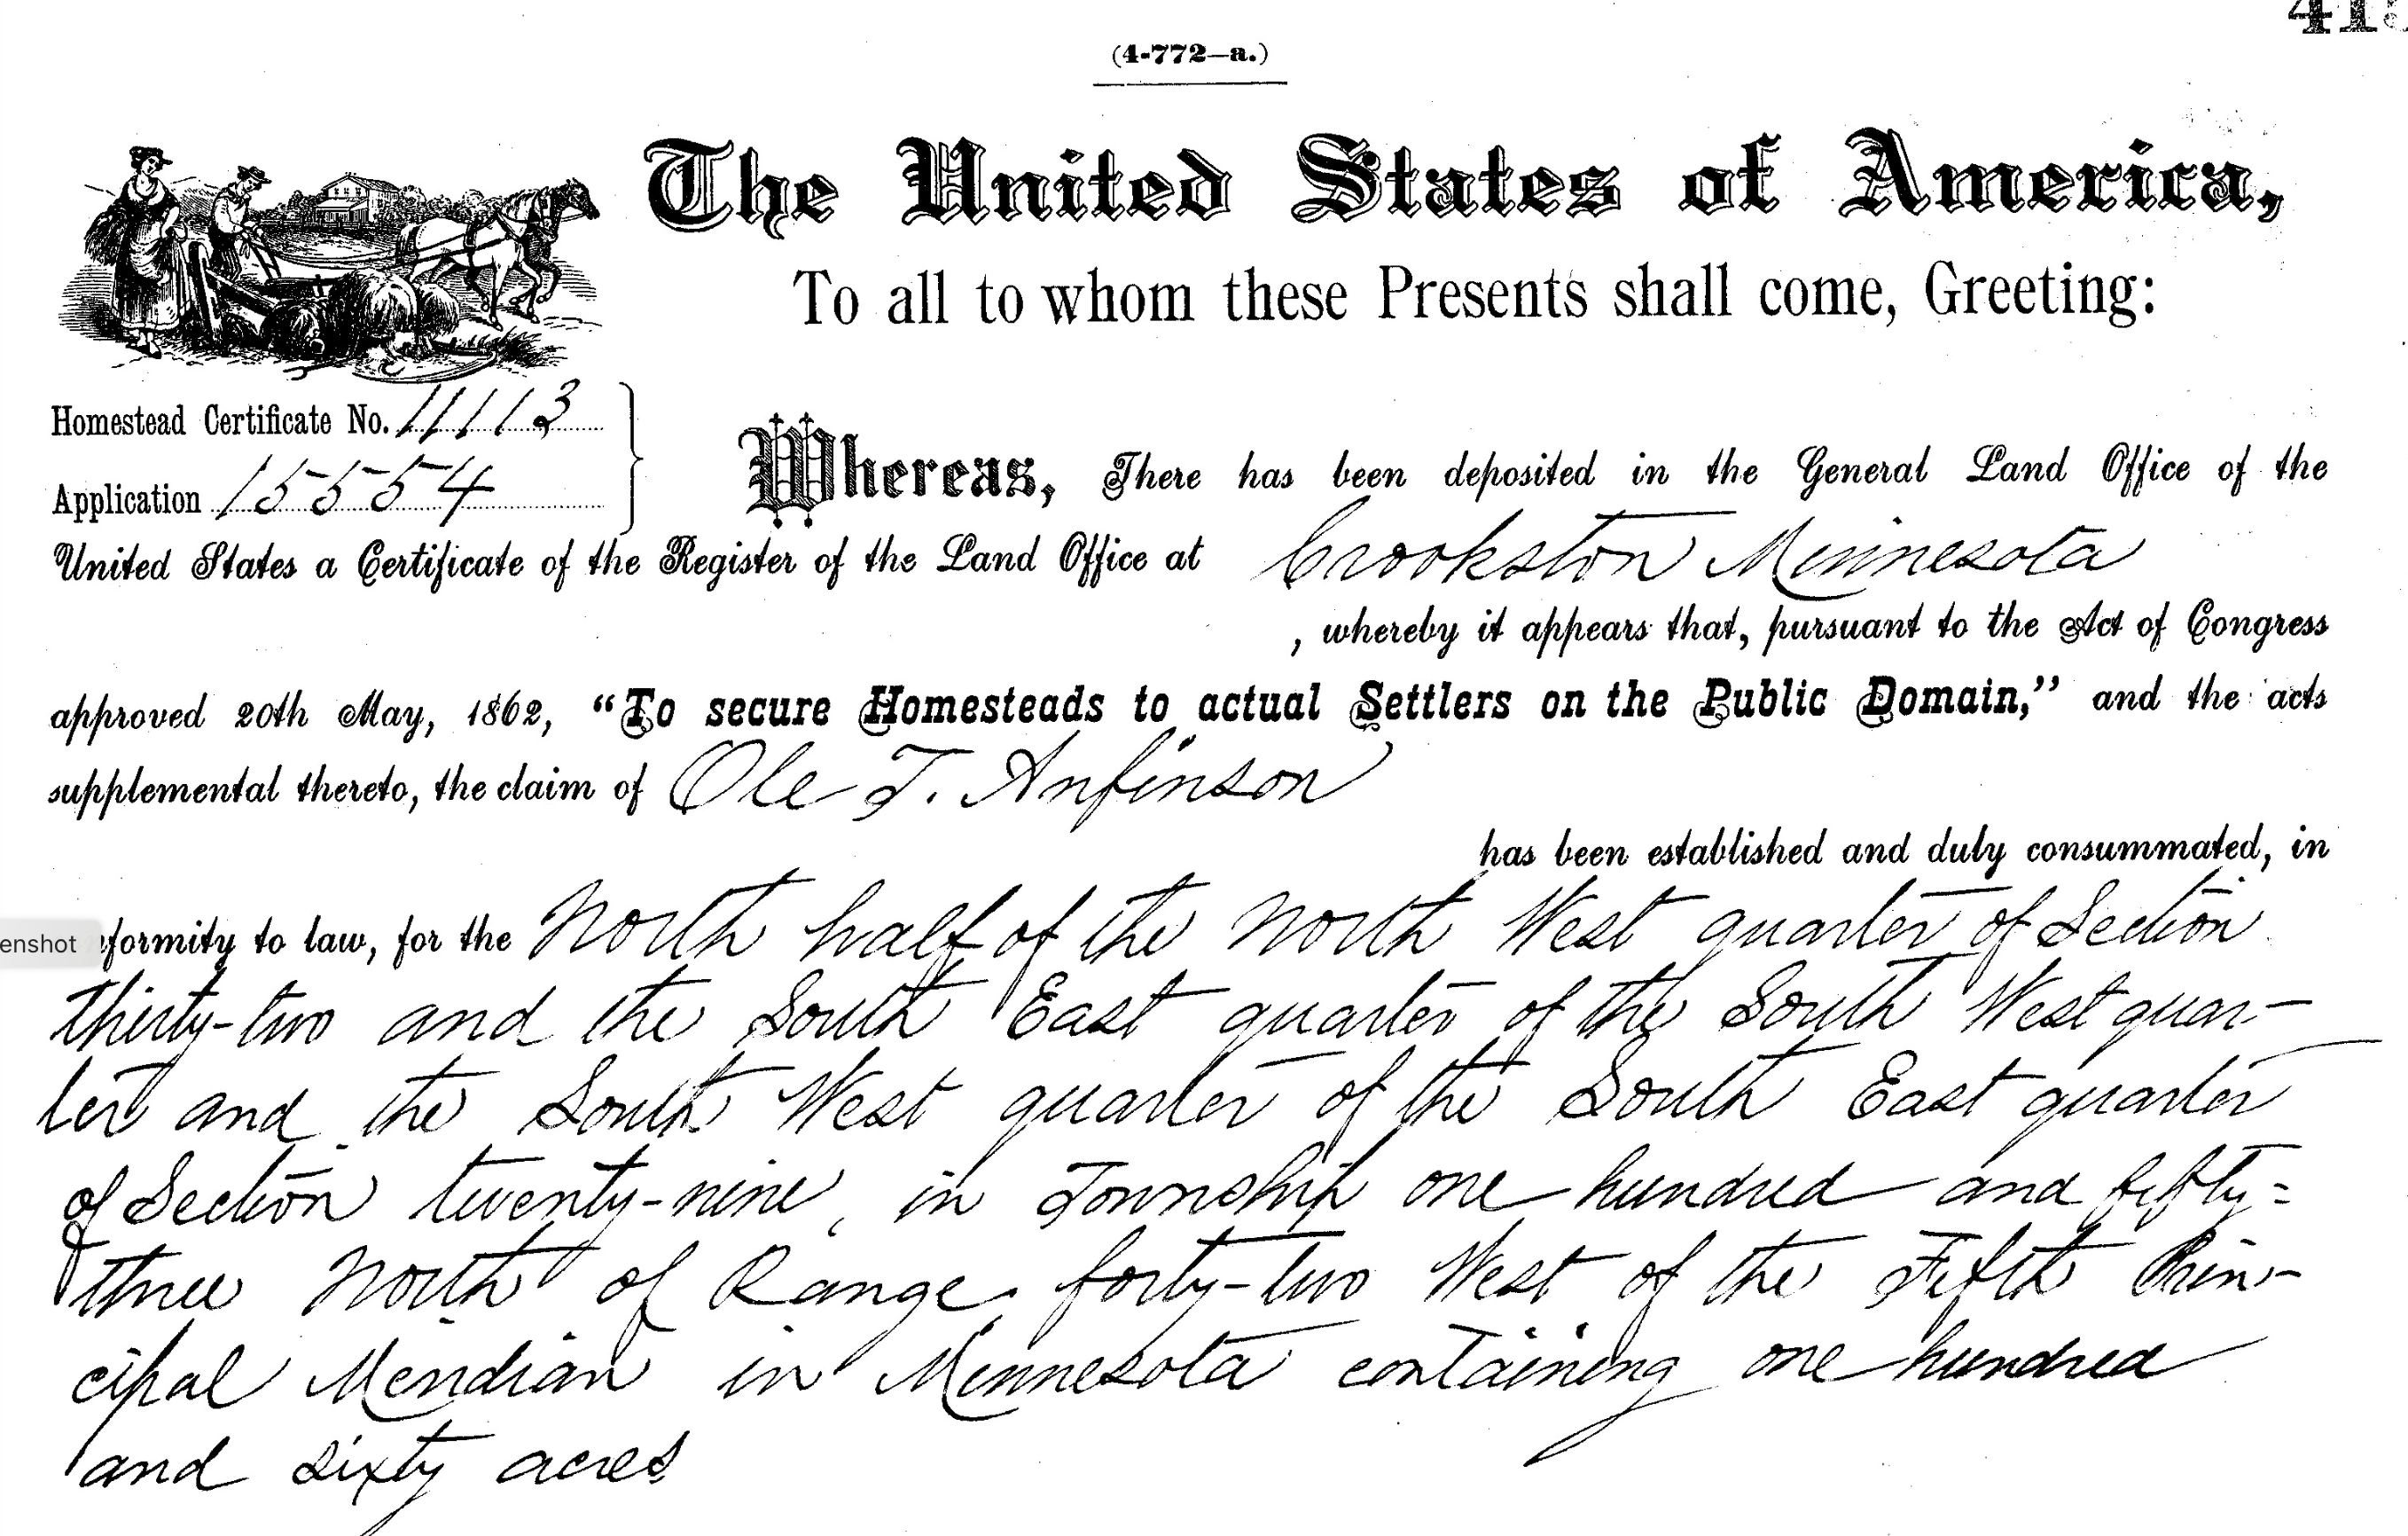 (4-772-a.)
The United States of America,
To all to whom these Presents shall come, Greeting:
Homestead Certificate No. 11113
Application 15554
Whereas, There has been deposited in the General Land Office of the
United States a Certificate of the Register of the Land Office at Crookston Minnesota
, whereby it appears that, pursuant to the Act of Congress
approved 20th May, 1862, “To secure Homesteads to actual Settlers on the Public Domain,” and the acts
supplemental thereto, the claim of Ole T. Anfinson
has been established and duly consummated, in
formity to law, for the North half of the North West quarter of Section
enshot
thirty-two and the South East quarter of the South West quar-
ter and the South West quarter of the South East quarter
of Section twenty-nine, in Township one hundred and fifty=
three North of Range forty-two West of the Fifth Prin-
cipal Meridian in Minnesota containing one hundred
and sixty acres